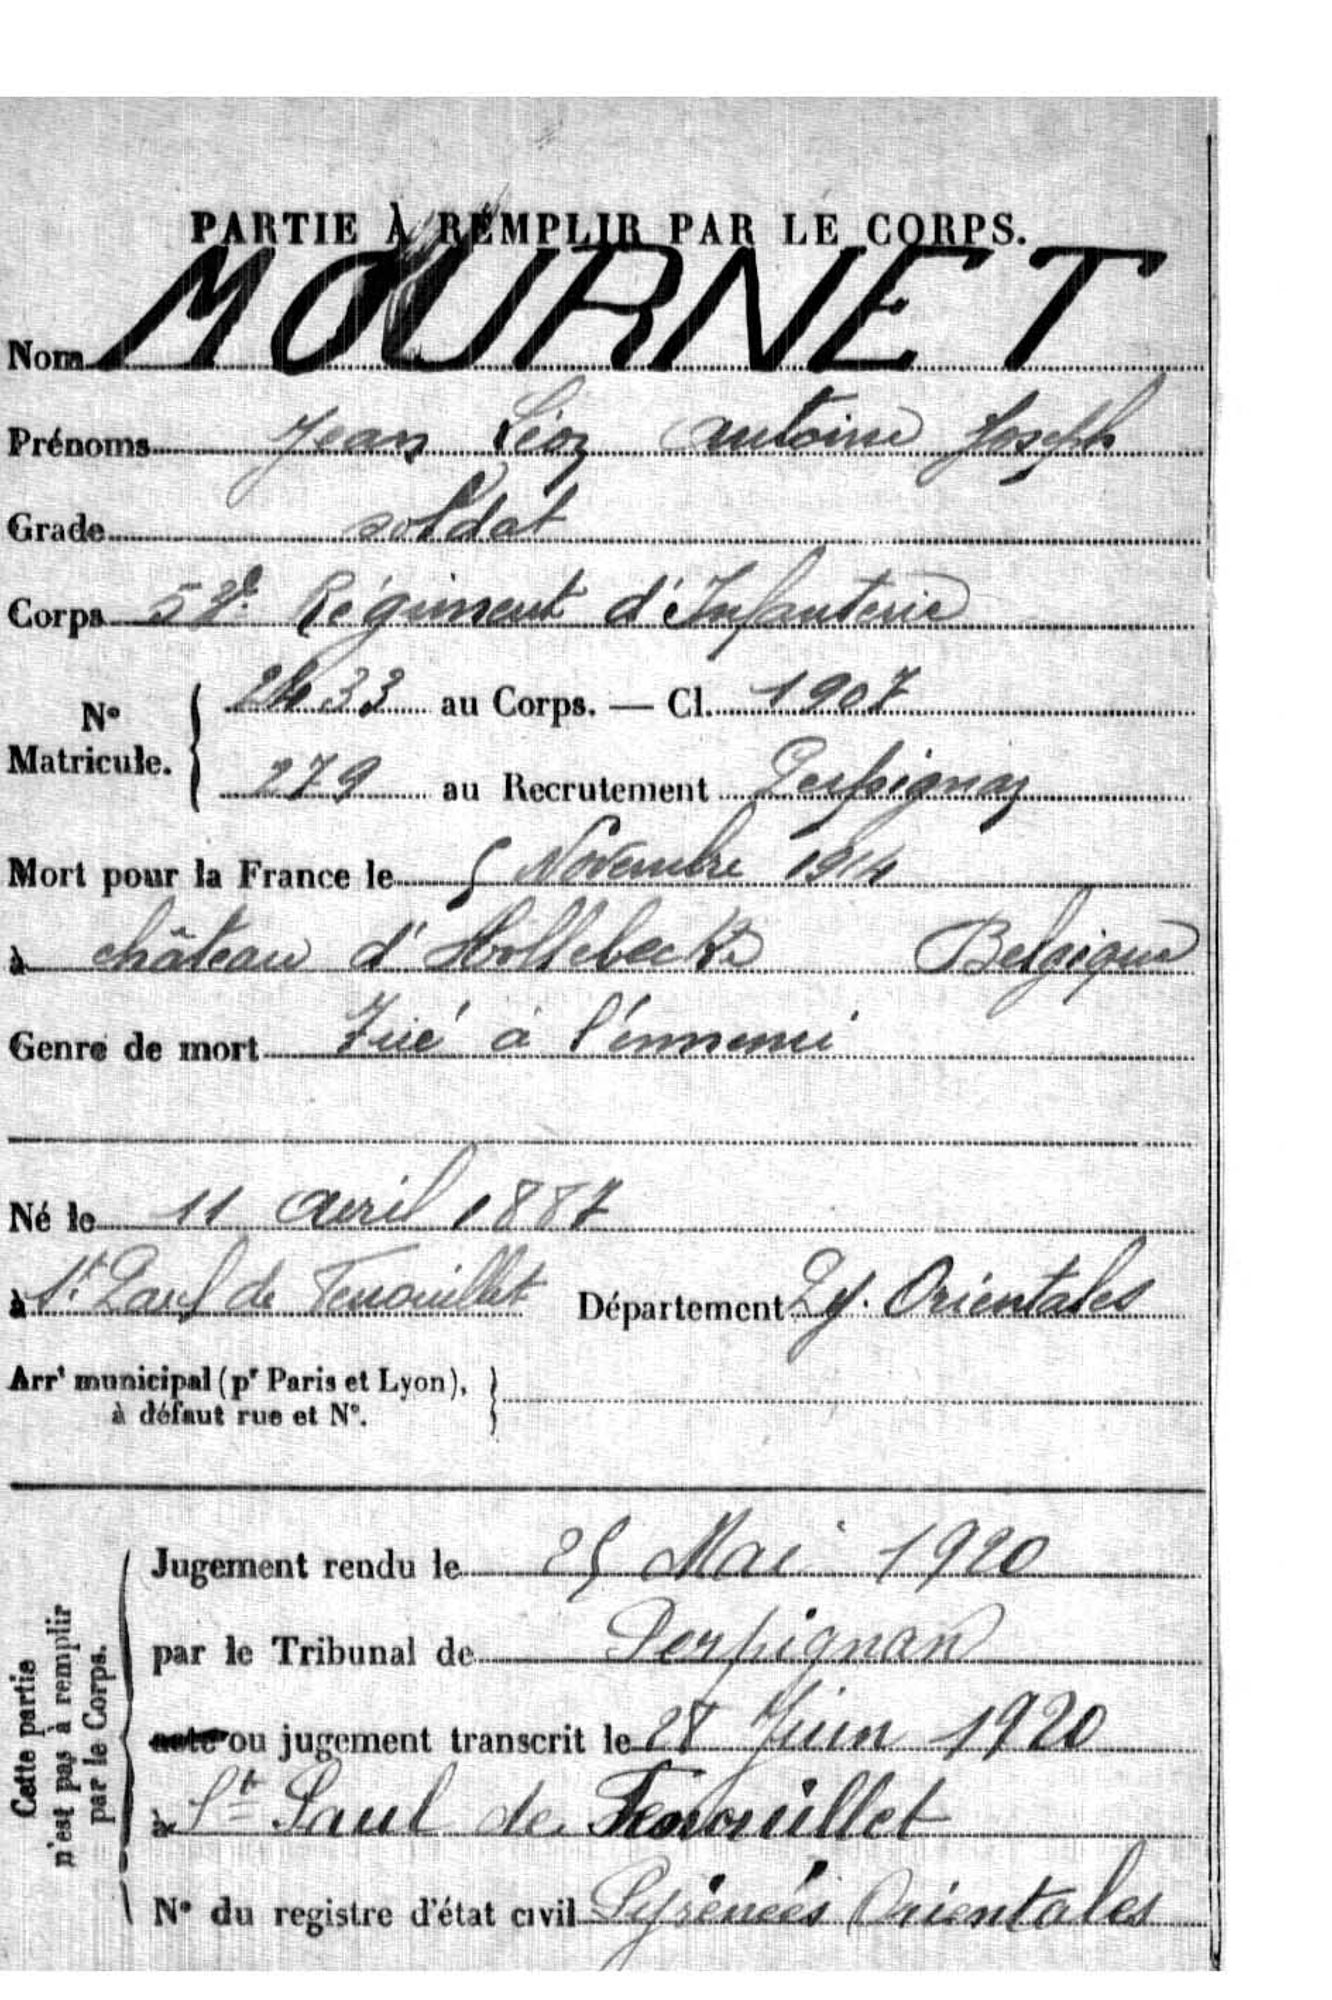 PARTIE À REMPLIR PAR LE CORPS.
Nom MOURNET
Prénoms Jean Léon Antoine Joseph
Grade soldat
Corps Régiment d'Infanterie
N° Matricule. 2433 au Corps. — Cl. 1907
279 au Recrutement Perpignan
Mort pour la France le 5 Novembre 1914
à château d'Hollebecke Belgique
Genre de mort Tué à l'ennemi
Né le 11 avril 1887
à St Paul de Fenouillet Département Py. Orientales
Arrt municipal (pr Paris et Lyon),
à défaut rue et N°.
Cette partie
n'est pas à remplir
par le Corps.
Jugement rendu le 25 Mai 1920
par le Tribunal de Perpignan
acte ou jugement transcrit le 28 Juin 1920
à St Paul de Fenouillet
N° du registre d'état civil Pyrénées Orientales